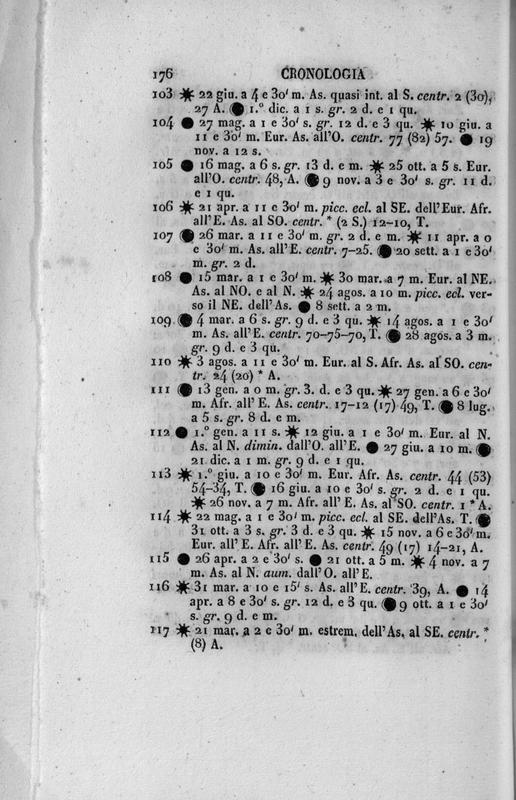 176 CRONOLOGIA
103 ☀ 22 giu. a 4 e 30' m. As. quasi int. al S. centr. 2 (30),
27 A. ● 1.° dic. a 1 s. gr. 2 d. e 1 qu.
104 ● 27 mag. a 1 e 30' s. gr. 12 d. e 3 qu. ☀ 10 giu. a
11 e 30' m. Eur. As. all'O. centr. 77 (82) 57. ● 19
nov. a 12 s.
105 ● 16 mag. a 6 s. gr. 13 d. e m. ☀ 25 ott. a 5 s. Eur.
all'O. centr. 48, A. ● 9 nov. a 3 e 30' s. gr. 11 d.
e 1 qu.
106 ☀ 21 apr. a 11 e 30' m. picc. ecl. al SE. dell'Eur. Afr.
all'E. As. al SO. centr. * (2 S.) 12-10, T.
107 ● 26 mar. a 11 e 30' m. gr. 2 d. e m. ☀ 11 apr. a 0
e 30' m. As. all'E. centr. 7-25. ● 20 sett. a 1 e 30'
m. gr. 2 d.
108 ● 15 mar. a 1 e 30' m. ☀ 30 mar. a 7 m. Eur. al NE.
As. al NO. e al N. ☀ 24 agos. a 10 m. picc. ecl. ver-
so il NE. dell'As. ● 8 sett. a 2 m.
109 ● 4 mar. a 6 s. gr. 9 d. e 3 qu. ☀ 14 agos. a 1 e 30'
m. As. all'E. centr. 70-75-70, T. ● 28 agos. a 3 m.
gr. 9 d. e 3 qu.
110 ☀ 3 agos. a 11 e 30' m. Eur. al S. Afr. As. al SO. cen-
tr. 24 (20) * A.
111 ● 13 gen. a 0 m. gr. 3. d. e 3 qu. ☀ 27 gen. a 6 e 30'
m. Afr. all'E. As. centr. 17-12 (17) 49, T. ● 8 lug.
a 5 s. gr. 8 d. e m.
112 ● 1.° gen. a 11 s. ☀ 12 giu. a 1 e 30' m. Eur. al N.
As. al N. dimin. dall'O. all'E. ● 27 giu. a 10 m. ●
21 dic. a 1 m. gr. 9 d. e 1 qu.
113 ☀ 1.° giu. a 10 e 30' m. Eur. Afr. As. centr. 44 (53)
54-34, T. ● 16 giu. a 10 e 30' s. gr. 2 d. e 1 qu.
☀ 26 nov. a 7 m. Afr. all'E. As. al SO. centr. 1 * A.
114 ☀ 22 mag. a 1 e 30' m. picc. ecl. al SE. dell'As. T. ●
31 ott. a 3 s. gr. 3 d. e 3 qu. ☀ 15 nov. a 6 e 30' m.
Eur. all'E. Afr. all'E. As. centr. 49 (17) 14-21, A.
115 ● 26 apr. a 2 e 30' s. ● 21 ott. a 5 m. ☀ 4 nov. a 7
m. As. al N. aum. dall'O. all'E.
116 ☀ 31 mar. a 10 e 15' s. As. all'E. centr. 39, A. ● 14
apr. a 8 e 30' s. gr. 12 d. e 3 qu. ● 9 ott. a 1 e 30'
s. gr. 9 d. e m.
117 ☀ 21 mar. a 2 e 30' m. estrem. dell'As. al SE. centr. *
(8) A.